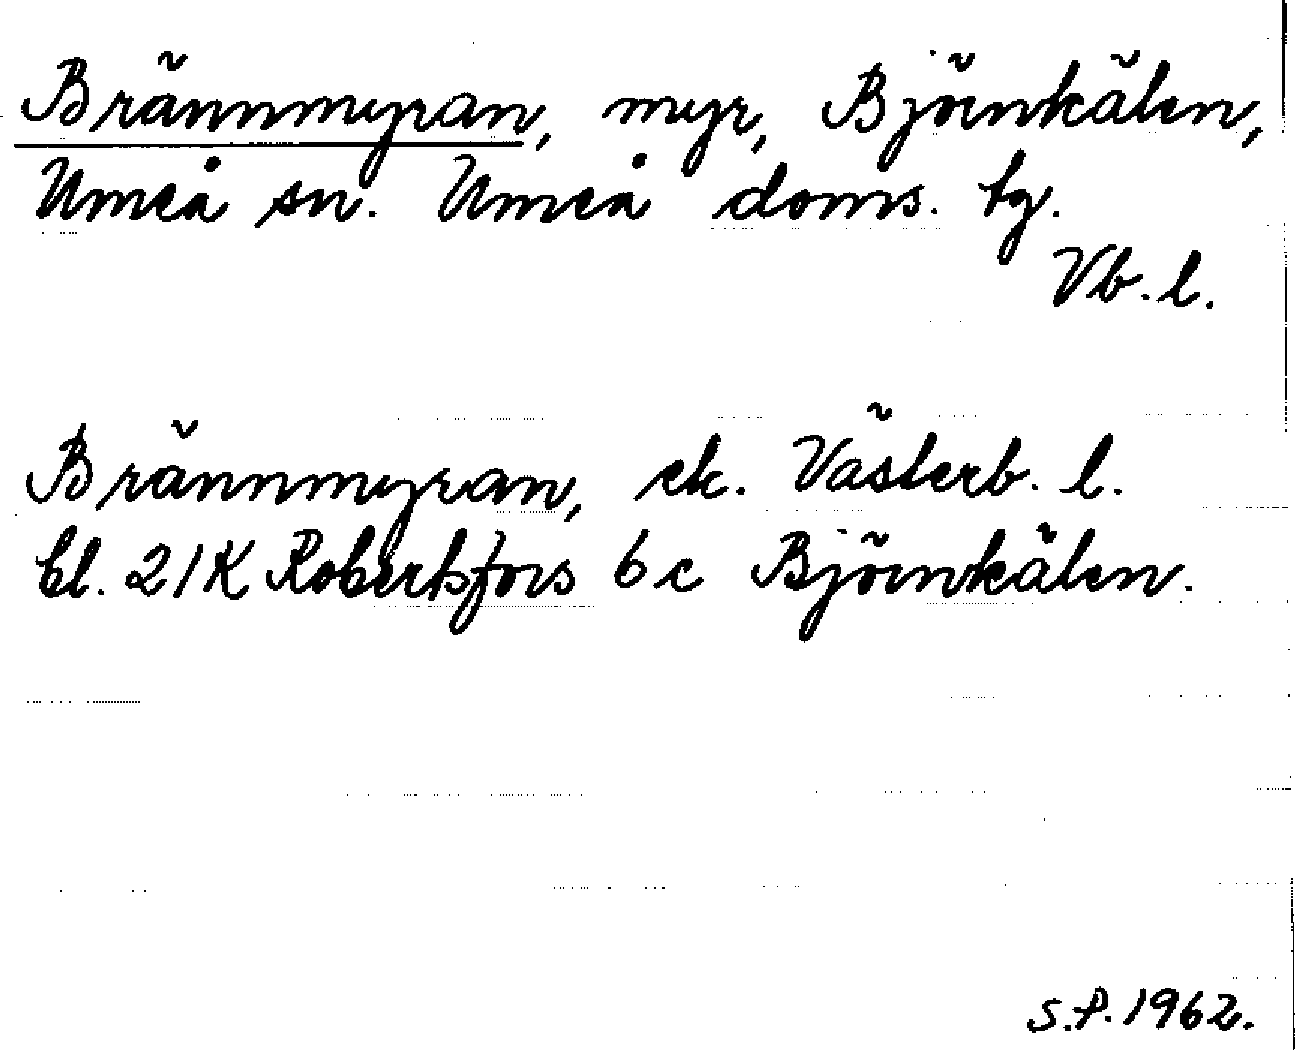 Brännmyran, myr, Björnkälen,
Umeå sn. Umeå doms. tg.
Vb. l.
Brännmyran, ek. Västerb. l.
bl. 21K Robertsfors 6 c Björnkälen.
S.P. 1962.